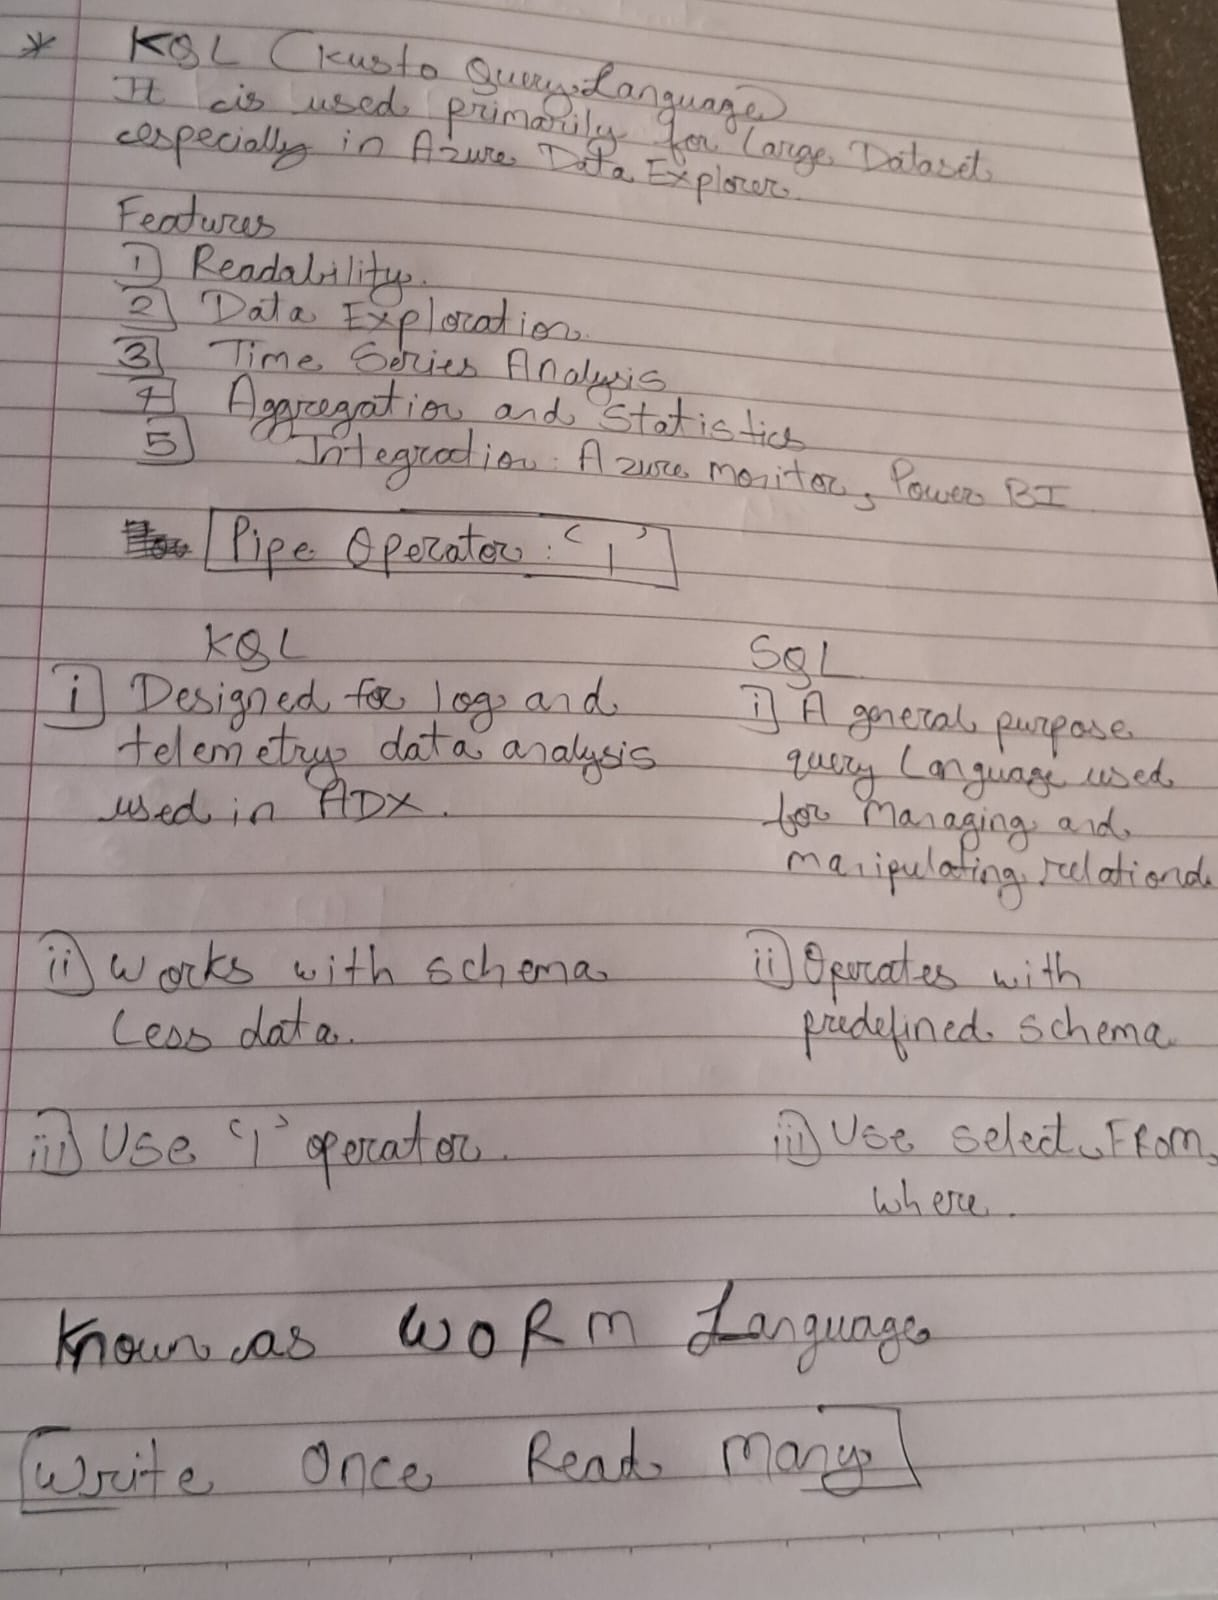 * KQL (Kusto Query Language)
It is used primarily for Large Dataset
especially in Azure Data Explorer.
Features
1) Readability.
2) Data Exploration.
3) Time Series Analysis
4) Aggregation and Statistics
5) Integration: Azure Monitor, Power BI
Pipe Operator: '|'
KQL
i) Designed for log and
telemetry data analysis
used in ADX.
SQL
i) A general purpose
query Language used
for Managing and
manipulating relational
ii) Works with schema
Less data.
ii) Operates with
predefined schema
iii) Use '|' operator.
iii) Use select, FROM,
where.
Known as WORM Language
Write Once Read Many